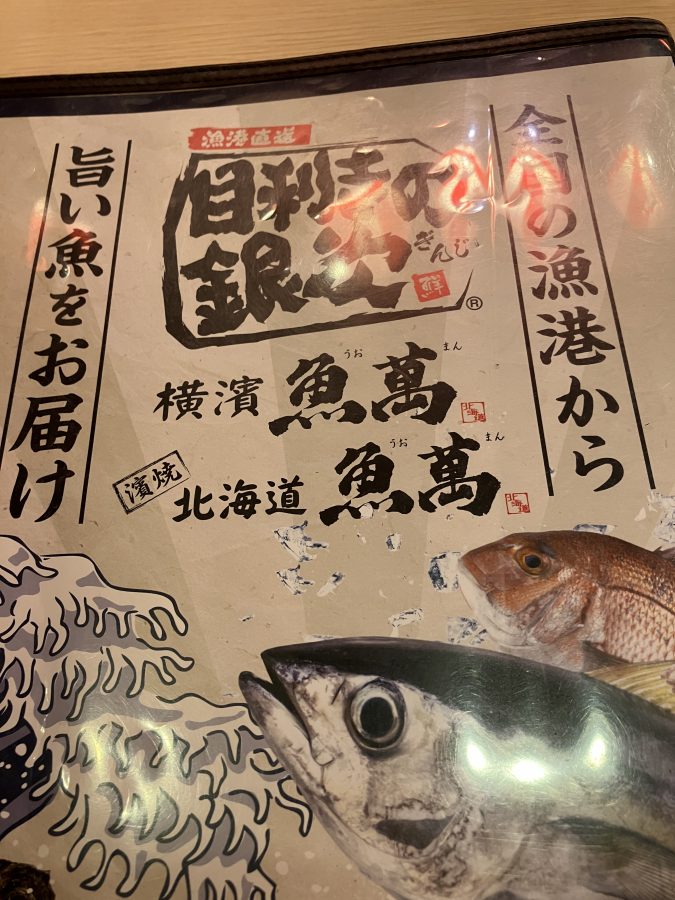 全国の漁港から
漁港直送
目利きの
銀次
ぎんじ
鮮
®
横濱 魚萬
うお まん
北海道
濱焼
北海道 魚萬
うお まん
北海道
旨い魚をお届け